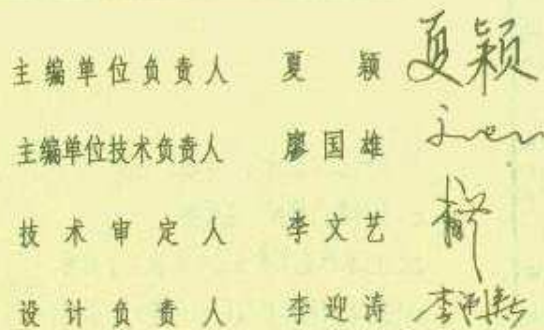 主编单位负责人 夏颖 夏颖
主编单位技术负责人 廖国雄
技术审定人 李文艺
设计负责人 李迎涛